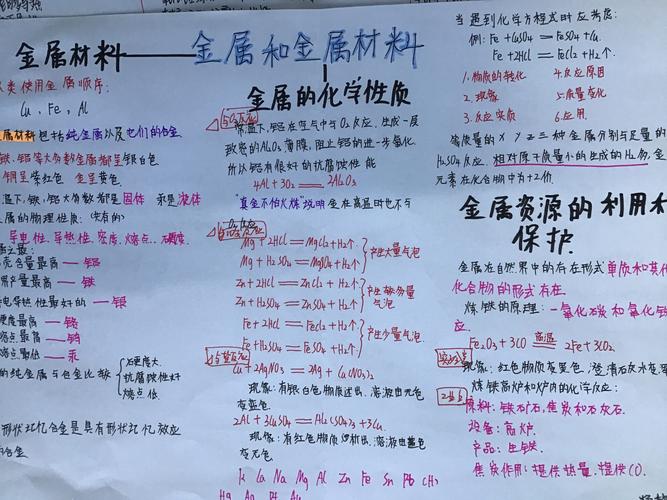 金属和金属材料
金属材料
类使用金属顺序:
Cu, Fe, Al
属材料包括纯金属以及它们的合金
铁、铝等大多数金属都呈银白色
铜呈紫红色 金呈黄色
温下,铁、铝大多数都是固体 汞是液体
属的物理性质:(实有的)
导电性、导热性、密度、熔点、硬度
之最:
壳含量最高——铝
用产量最高——铁
电导热性最好的——银
硬度最高——铬
熔点最高——钨
熔点最低——汞
的纯金属与合金比较
硬度大
抗腐蚀性好
熔点低
形状记忆合金是具有形状记忆效应
合金
金属的化学性质
常温下,铝在空气中与O₂反应,生成一层
致密的Al₂O₃薄膜,阻止铝的进一步氧化,
所以铝有很好的抗腐蚀性能
4Al+3O₂=2Al₂O₃
"真金不怕火炼"说明金在高温时也不与
O₂反应
Mg+2HCl=MgCl₂+H₂↑
Mg+H₂SO₄=MgSO₄+H₂↑
产生大量气泡
Zn+2HCl=ZnCl₂+H₂↑
Zn+H₂SO₄=ZnSO₄+H₂↑
产生较多量气泡
Fe+2HCl=FeCl₂+H₂↑
Fe+H₂SO₄=FeSO₄+H₂↑
产生少量气泡
Cu+2AgNO₃=2Ag+Cu(NO₃)₂
现象:有银白色物质析出,溶液由无色
变蓝色.
2Al+3CuSO₄=Al₂(SO₄)₃+3Cu.
现象:有红色物质析出,溶液由蓝色
变无色.
K Ca Na Mg Al Zn Fe Sn Pb (H)
Hg Ag Pt Au
当遇到化学方程式时应考虑:
例:Fe+CuSO₄=FeSO₄+Cu.
Fe+2HCl=FeCl₂+H₂↑.
1.物质的转化 4.反应原因
2.现象 5.质量变化
3.反应实质 6.应用
等质量的X Y Z三种金属分别与足量的
H₂SO₄反应,相对原子质量小的生成的H₂多,金
元素在化合物中为+2价
金属资源的利用和
保护
金属在自然界中的存在形式单质和其
化合物的形式存在.
炼铁的原理:一氧化碳和氧化铁
应.
Fe₂O₃+3CO 高温 2Fe+3CO₂
现象:红色物质变黑色,澄清石灰水变
炼铁高炉和炉内的化学反应:
原料:铁矿石,焦炭和石灰石.
设备:高炉.
产品:生铁.
焦炭作用:提供热量,提供CO.